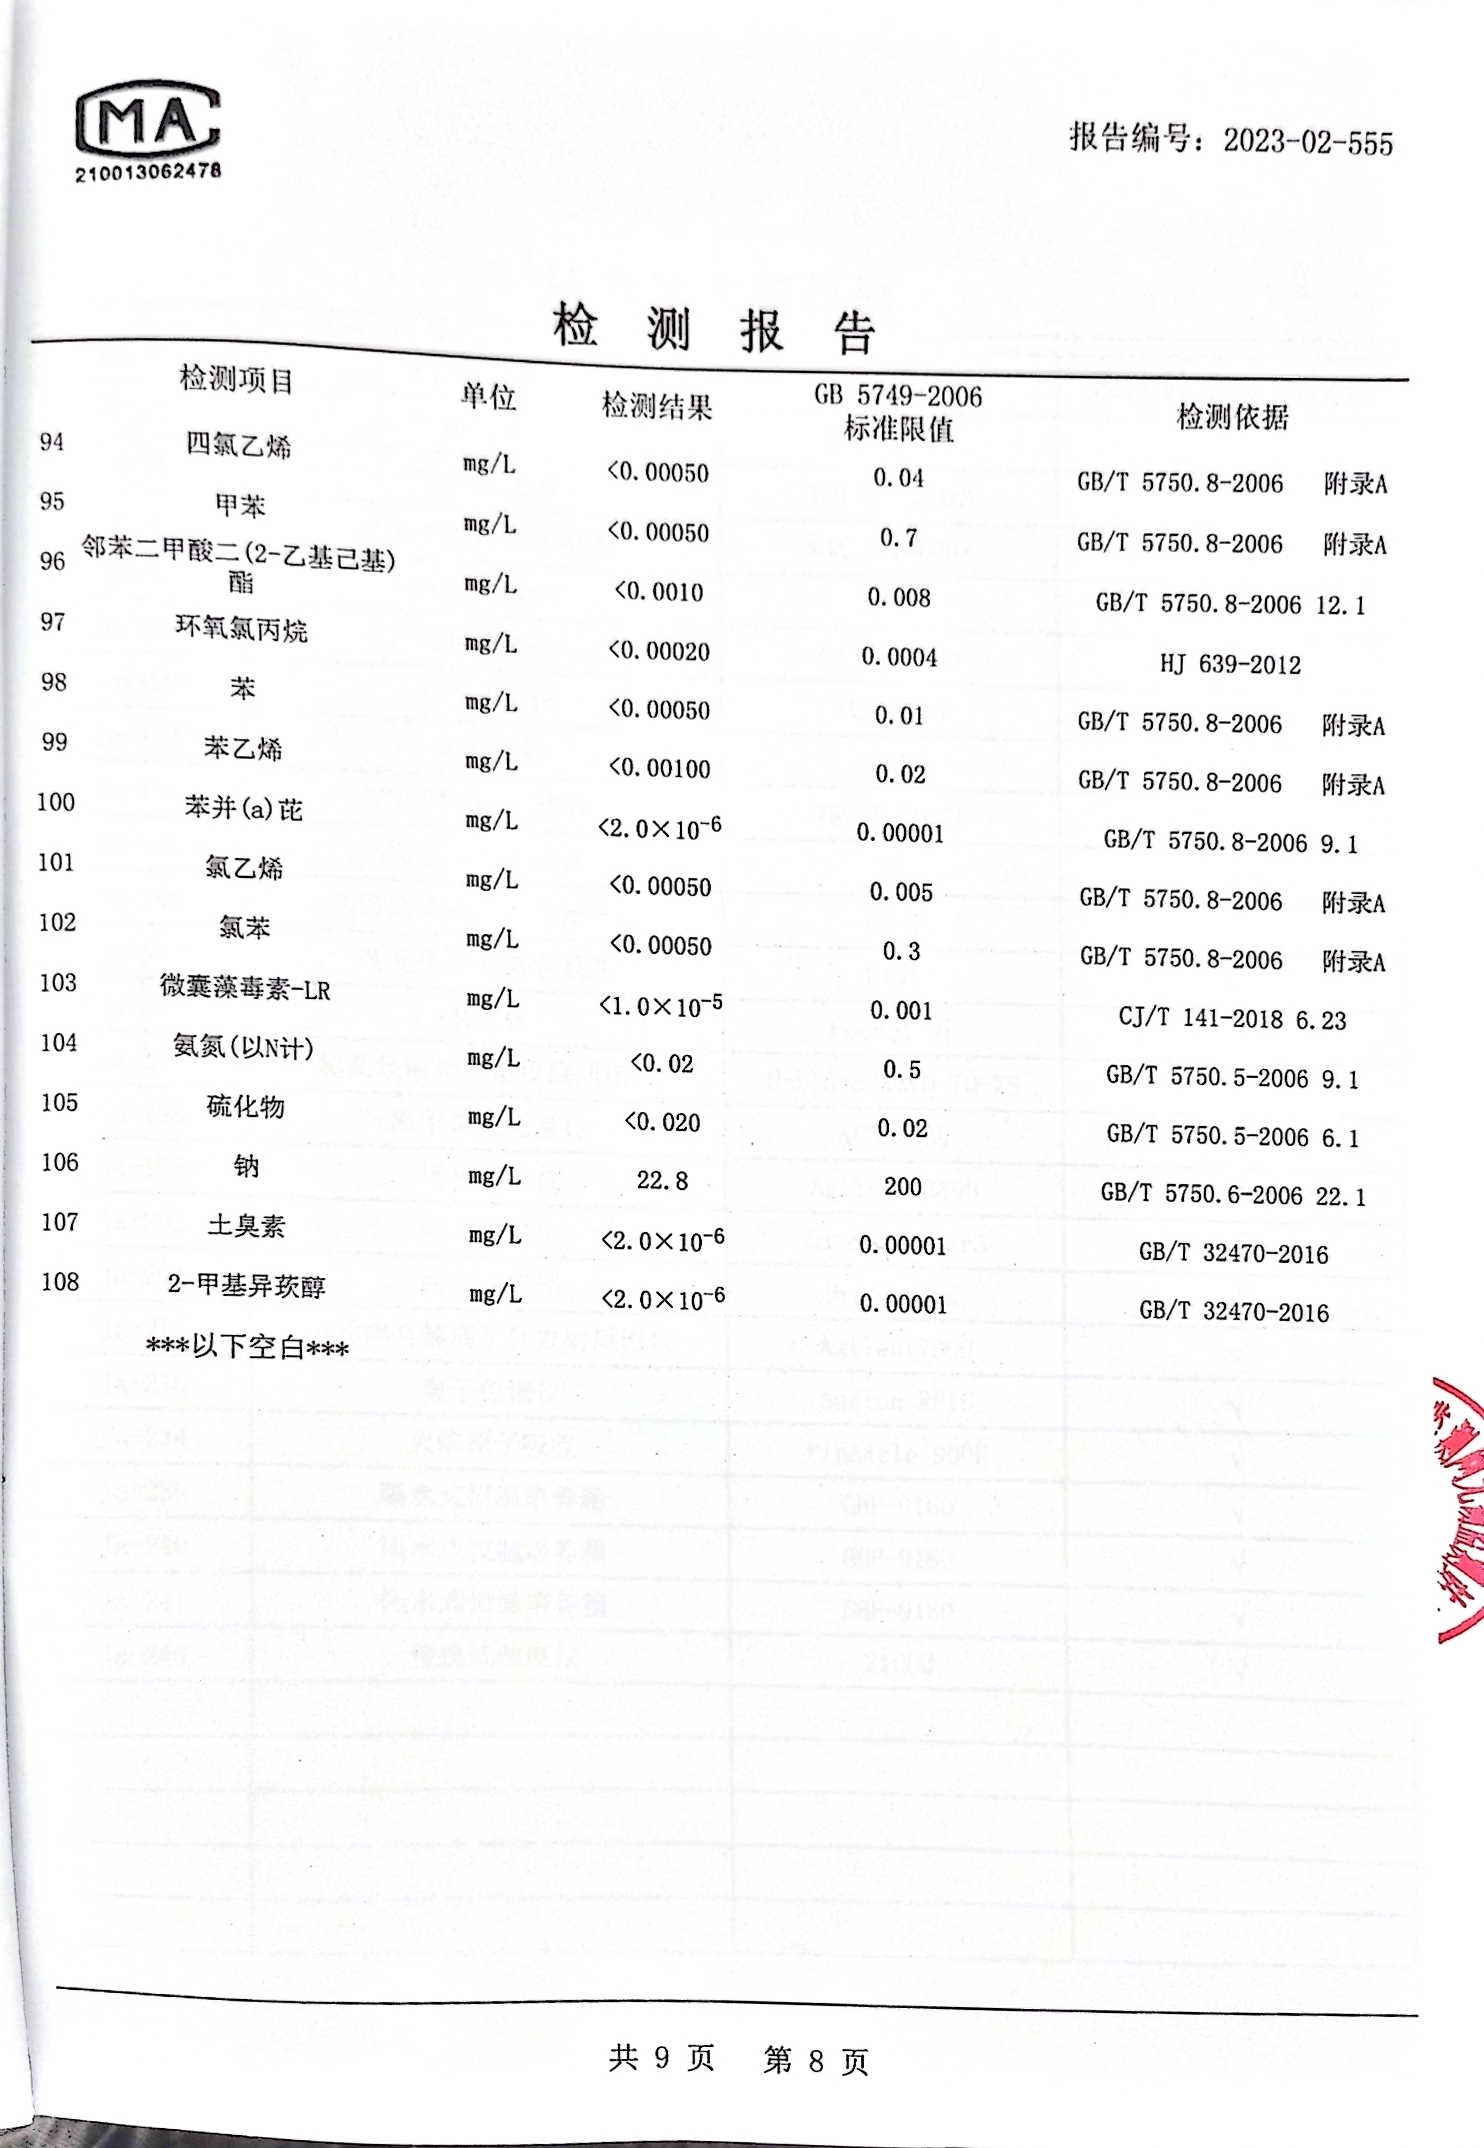 CMA
210013062478
报告编号：2023-02-555
检 测 报 告
检测项目 单位 检测结果 GB 5749-2006 标准限值 检测依据
94 四氯乙烯 mg/L <0.00050 0.04 GB/T 5750.8-2006 附录A
95 甲苯 mg/L <0.00050 0.7 GB/T 5750.8-2006 附录A
96 邻苯二甲酸二(2-乙基己基)
酯 mg/L <0.0010 0.008 GB/T 5750.8-2006 12.1
97 环氧氯丙烷 mg/L <0.00020 0.0004 HJ 639-2012
98 苯 mg/L <0.00050 0.01 GB/T 5750.8-2006 附录A
99 苯乙烯 mg/L <0.00100 0.02 GB/T 5750.8-2006 附录A
100 苯并(a)芘 mg/L <2.0×10⁻⁶ 0.00001 GB/T 5750.8-2006 9.1
101 氯乙烯 mg/L <0.00050 0.005 GB/T 5750.8-2006 附录A
102 氯苯 mg/L <0.00050 0.3 GB/T 5750.8-2006 附录A
103 微囊藻毒素-LR mg/L <1.0×10⁻⁵ 0.001 CJ/T 141-2018 6.23
104 氨氮(以N计) mg/L <0.02 0.5 GB/T 5750.5-2006 9.1
105 硫化物 mg/L <0.020 0.02 GB/T 5750.5-2006 6.1
106 钠 mg/L 22.8 200 GB/T 5750.6-2006 22.1
107 土臭素 mg/L <2.0×10⁻⁶ 0.00001 GB/T 32470-2016
108 2-甲基异莰醇 mg/L <2.0×10⁻⁶ 0.00001 GB/T 32470-2016
***以下空白***
共 9 页 第 8 页